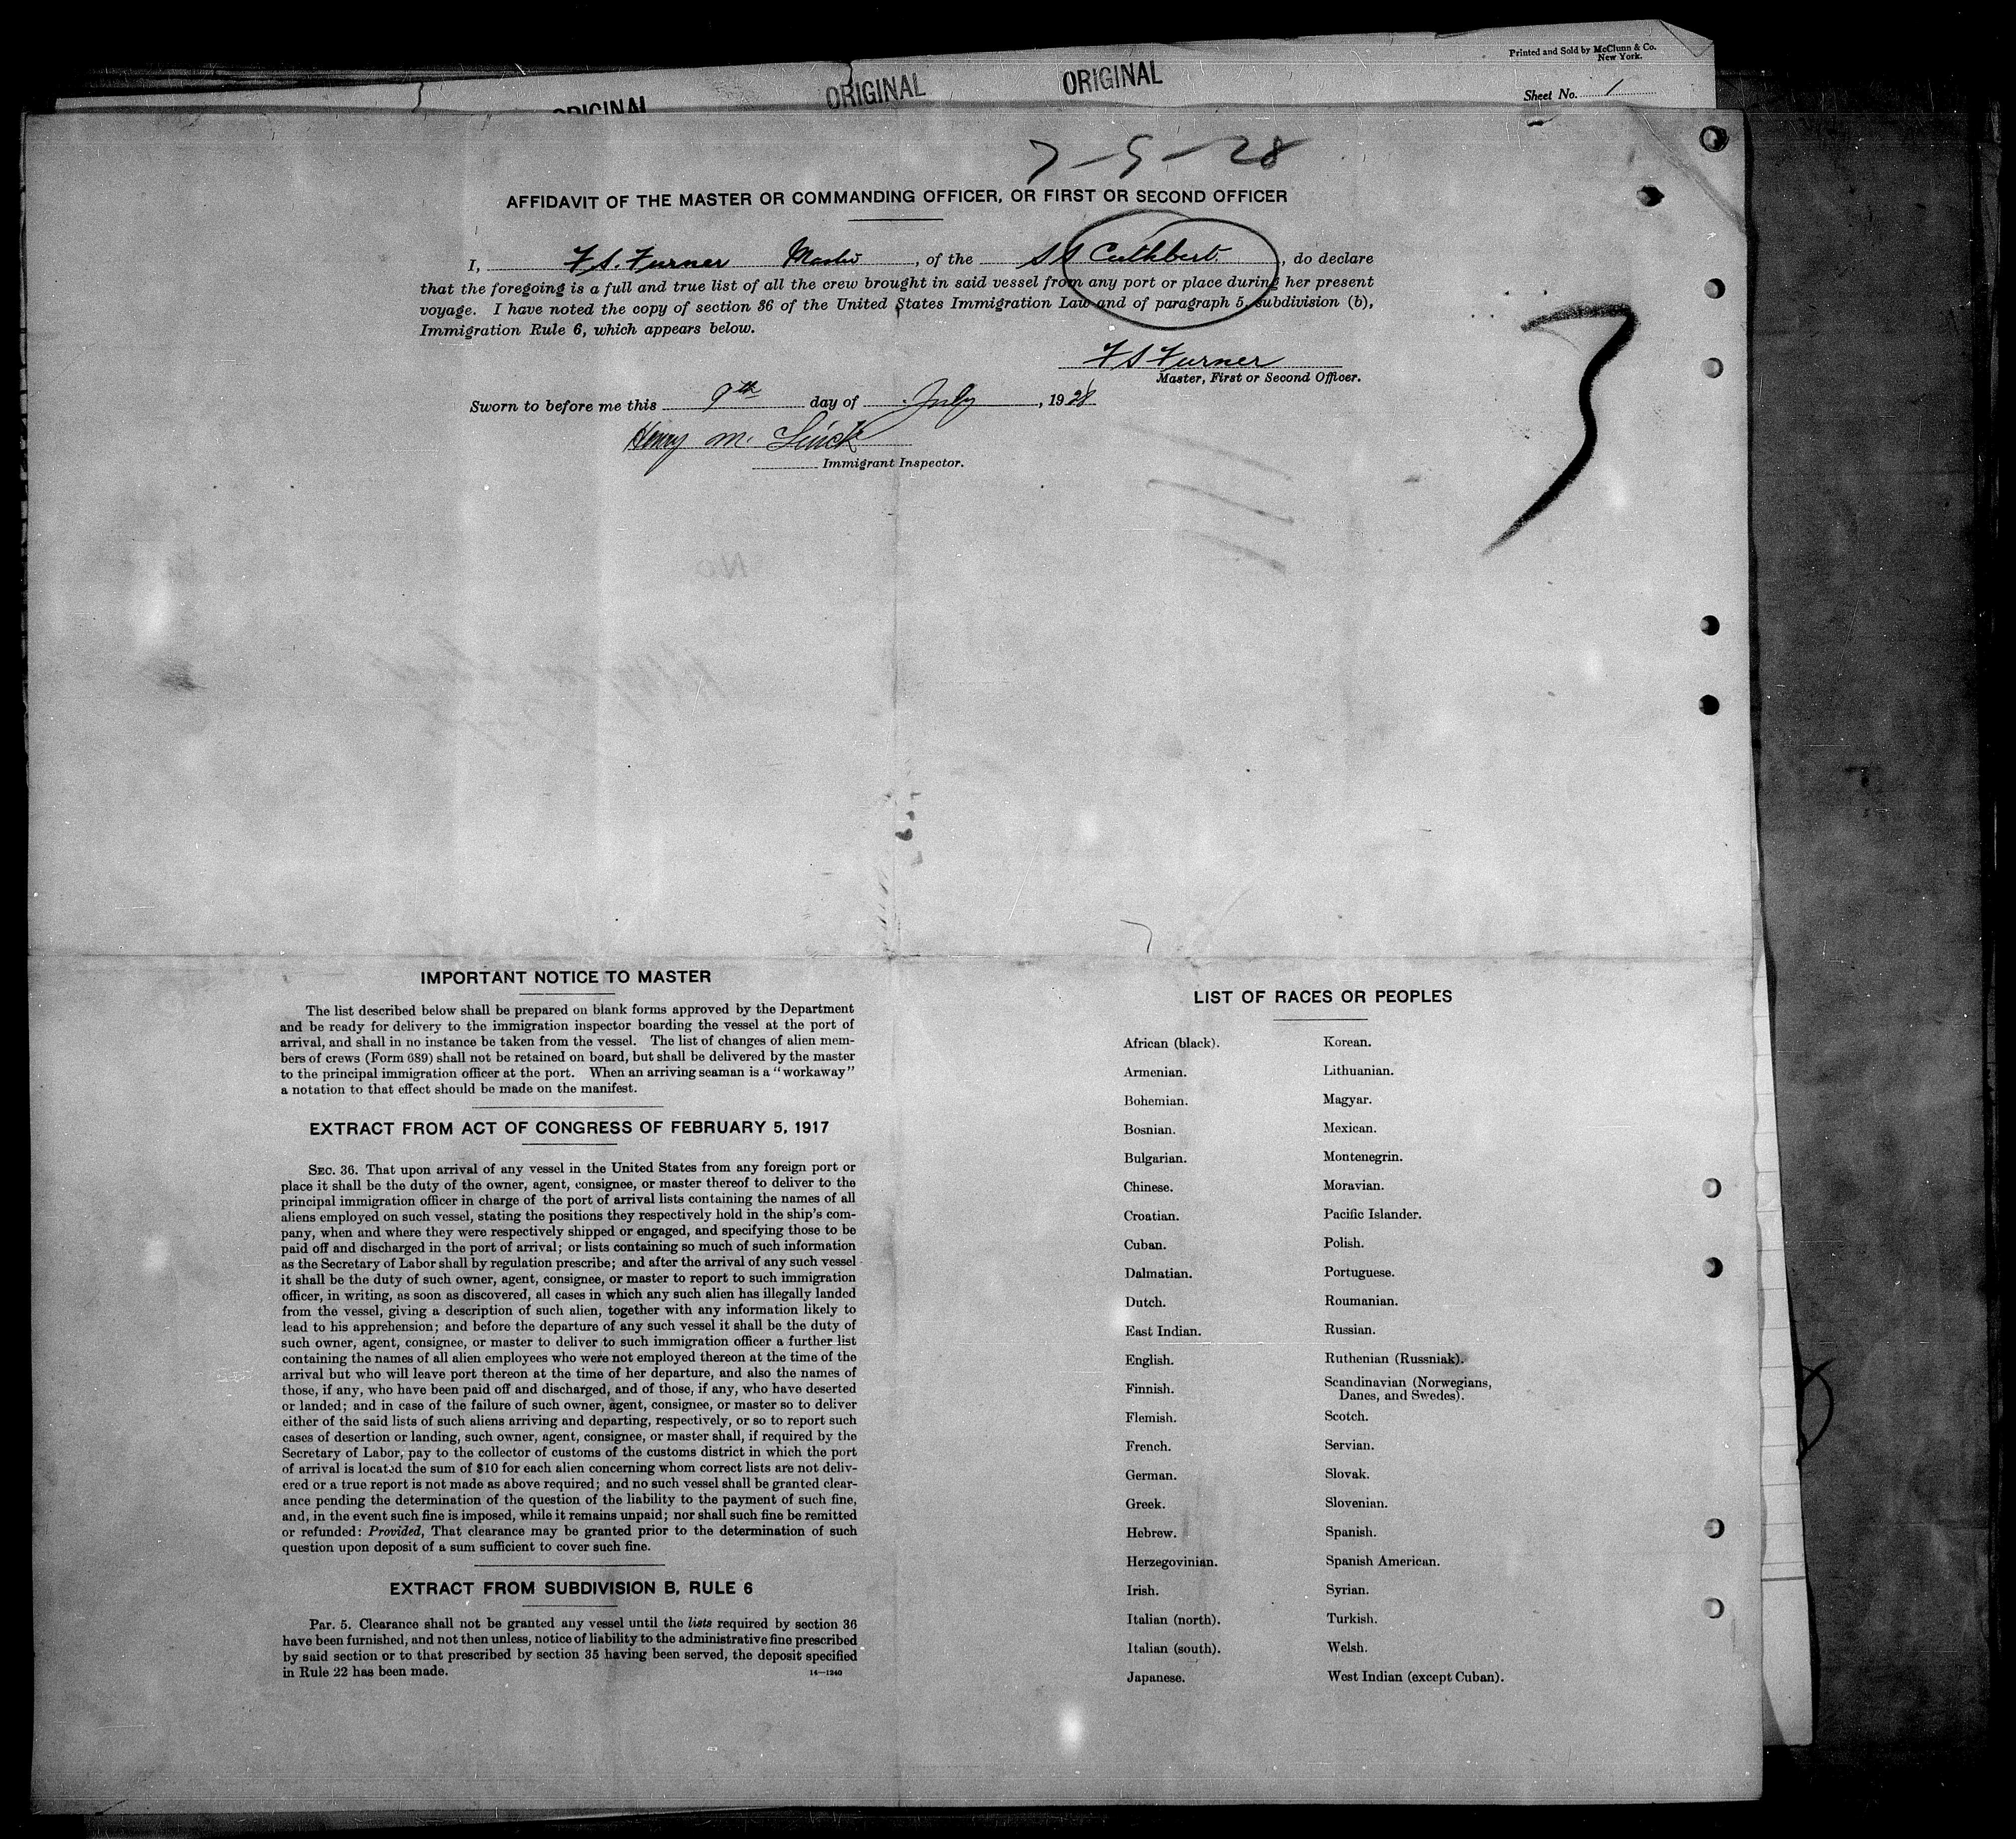 Printed and Sold by McClunn & Co.
New York.
ORIGINAL
ORIGINAL
ORIGINAL
Sheet No. 1
7-5-28
AFFIDAVIT OF THE MASTER OR COMMANDING OFFICER, OR FIRST OR SECOND OFFICER
I, F S. Furner Master, of the SS Cuthbert, do declare
that the foregoing is a full and true list of all the crew brought in said vessel from any port or place during her present
voyage. I have noted the copy of section 36 of the United States Immigration Law and of paragraph 5, subdivision (b),
Immigration Rule 6, which appears below.
F S Furner
Master, First or Second Officer.
Sworn to before me this 9th day of July, 1928
Henry M.
Immigrant Inspector.
IMPORTANT NOTICE TO MASTER
The list described below shall be prepared on blank forms approved by the Department
and be ready for delivery to the immigration inspector boarding the vessel at the port of
arrival, and shall in no instance be taken from the vessel. The list of changes of alien mem-
bers of crews (Form 689) shall not be retained on board, but shall be delivered by the master
to the principal immigration officer at the port. When an arriving seaman is a "workaway"
a notation to that effect should be made on the manifest.
EXTRACT FROM ACT OF CONGRESS OF FEBRUARY 5, 1917
SEC. 36. That upon arrival of any vessel in the United States from any foreign port or
place it shall be the duty of the owner, agent, consignee, or master thereof to deliver to the
principal immigration officer in charge of the port of arrival lists containing the names of all
aliens employed on such vessel, stating the positions they respectively hold in the ship's com-
pany, when and where they were respectively shipped or engaged, and specifying those to be
paid off and discharged in the port of arrival; or lists containing so much of such information
as the Secretary of Labor shall by regulation prescribe; and after the arrival of any such vessel
it shall be the duty of such owner, agent, consignee, or master to report to such immigration
officer, in writing, as soon as discovered, all cases in which any such alien has illegally landed
from the vessel, giving a description of such alien, together with any information likely to
lead to his apprehension; and before the departure of any such vessel it shall be the duty of
such owner, agent, consignee, or master to deliver to such immigration officer a further list
containing the names of all alien employees who were not employed thereon at the time of the
arrival but who will leave port thereon at the time of her departure, and also the names of
those, if any, who have been paid off and discharged, and of those, if any, who have deserted
or landed; and in case of the failure of such owner, agent, consignee, or master so to deliver
either of the said lists of such aliens arriving and departing, respectively, or so to report such
cases of desertion or landing, such owner, agent, consignee, or master shall, if required by the
Secretary of Labor, pay to the collector of customs of the customs district in which the port
of arrival is located the sum of $10 for each alien concerning whom correct lists are not deliv-
ered or a true report is not made as above required; and no such vessel shall be granted clear-
ance pending the determination of the question of the liability to the payment of such fine,
and, in the event such fine is imposed, while it remains unpaid; nor shall such fine be remitted
or refunded: Provided, That clearance may be granted prior to the determination of such
question upon deposit of a sum sufficient to cover such fine.
EXTRACT FROM SUBDIVISION B, RULE 6
Par. 5. Clearance shall not be granted any vessel until the lists required by section 36
have been furnished, and not then unless, notice of liability to the administrative fine prescribed
by said section or to that prescribed by section 35 having been served, the deposit specified
in Rule 22 has been made.
14—1240
LIST OF RACES OR PEOPLES
African (black).
Armenian.
Bohemian.
Bosnian.
Bulgarian.
Chinese.
Croatian.
Cuban.
Dalmatian.
Dutch.
East Indian.
English.
Finnish.
Flemish.
French.
German.
Greek.
Hebrew.
Herzegovinian.
Irish.
Italian (north).
Italian (south).
Japanese.
Korean.
Lithuanian.
Magyar.
Mexican.
Montenegrin.
Moravian.
Pacific Islander.
Polish.
Portuguese.
Roumanian.
Russian.
Ruthenian (Russniak).
Scandinavian (Norwegians,
Danes, and Swedes).
Scotch.
Servian.
Slovak.
Slovenian.
Spanish.
Spanish American.
Syrian.
Turkish.
Welsh.
West Indian (except Cuban).